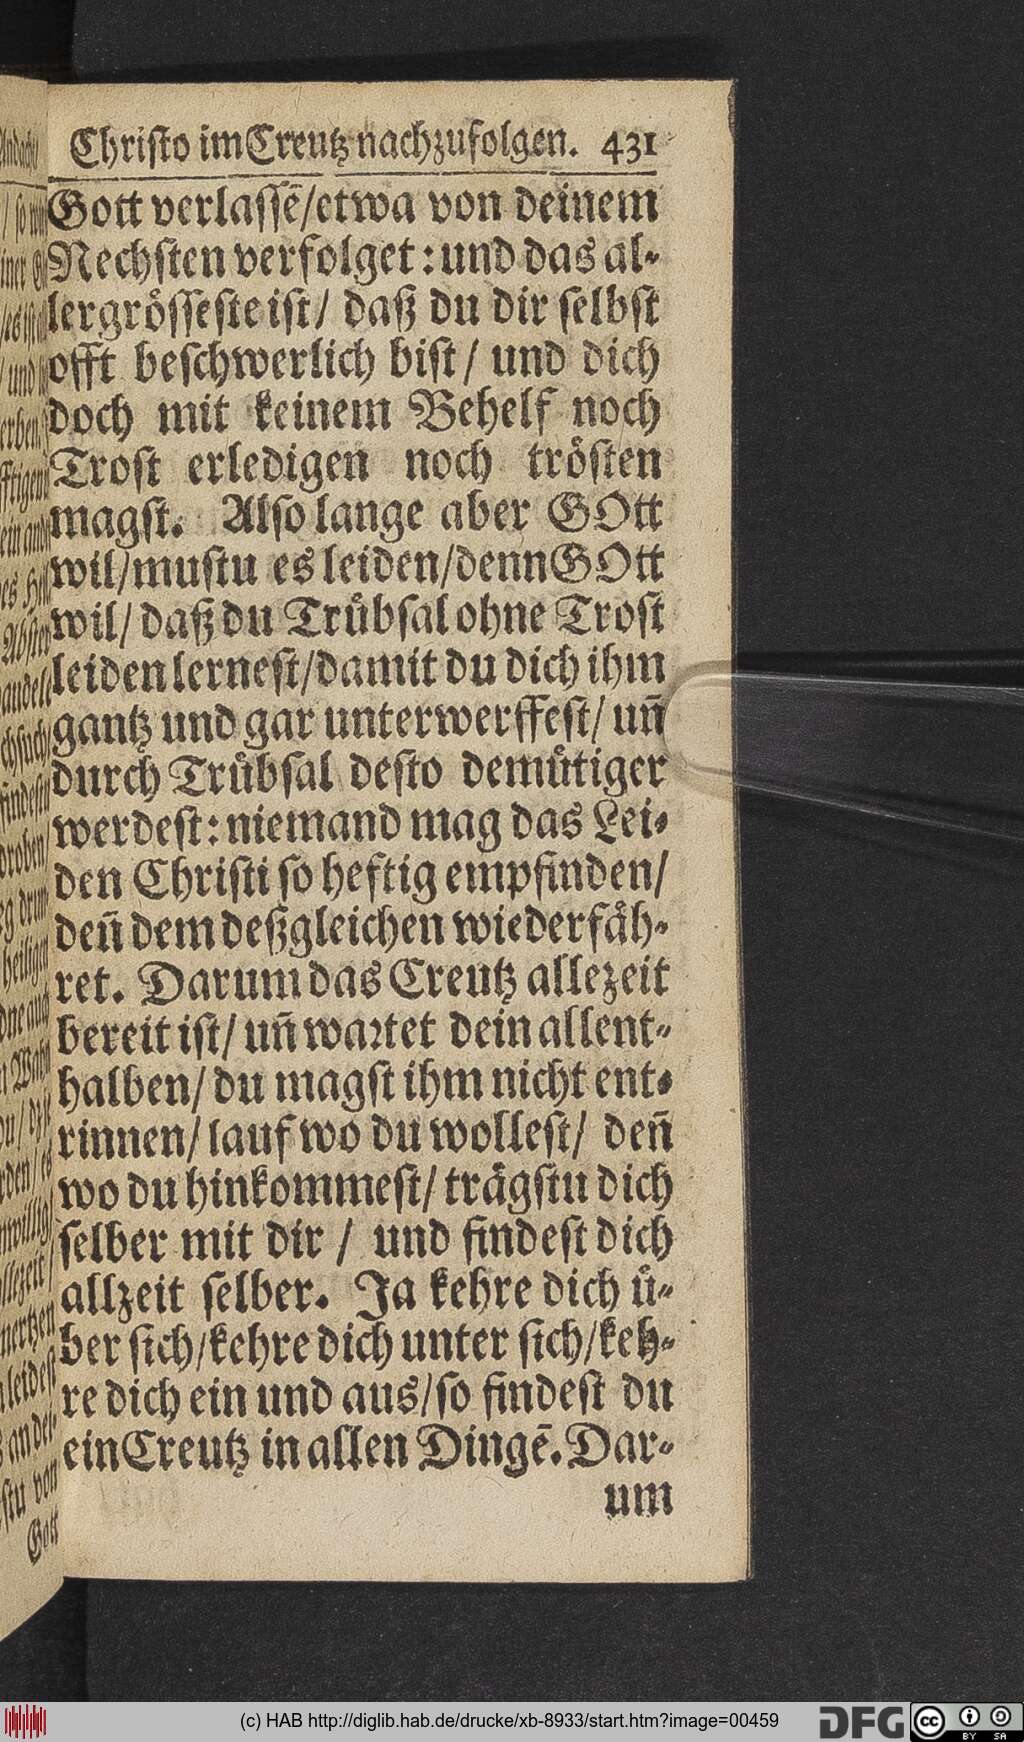 Christo im Creutz nachzufolgen. 431
Gott verlassē/etwa von deinem
Nechsten verfolget: und das al-
lergrösseste ist/ daß du dir selbst
offt beschwerlich bist/ und dich
doch mit keinem Behelf noch
Trost erledigen noch trösten
magst. Also lange aber GOtt
wil/mustu es leiden/denn GOtt
wil/ daß du Trübsal ohne Trost
leiden lernest/damit du dich ihm
gantz und gar unterwerffest/ uñ
durch Trübsal desto demütiger
werdest: niemand mag das Lei-
den Christi so heftig empfinden/
deñ dem deßgleichen wiederfäh-
ret. Darum das Creutz allezeit
bereit ist/ uñ wartet dein allent-
halben/ du magst ihm nicht ent-
rinnen/ lauf wo du wollest/ deñ
wo du hinkommest/ trägstu dich
selber mit dir / und findest dich
allzeit selber. Ja kehre dich ü-
ber sich/kehre dich unter sich/keh-
re dich ein und aus/so findest du
ein Creutz in allen Dingē. Dar-
um
Gott
(c) HAB http://diglib.hab.de/drucke/xb-8933/start.htm?image=00459
DFG
cc
BY SA